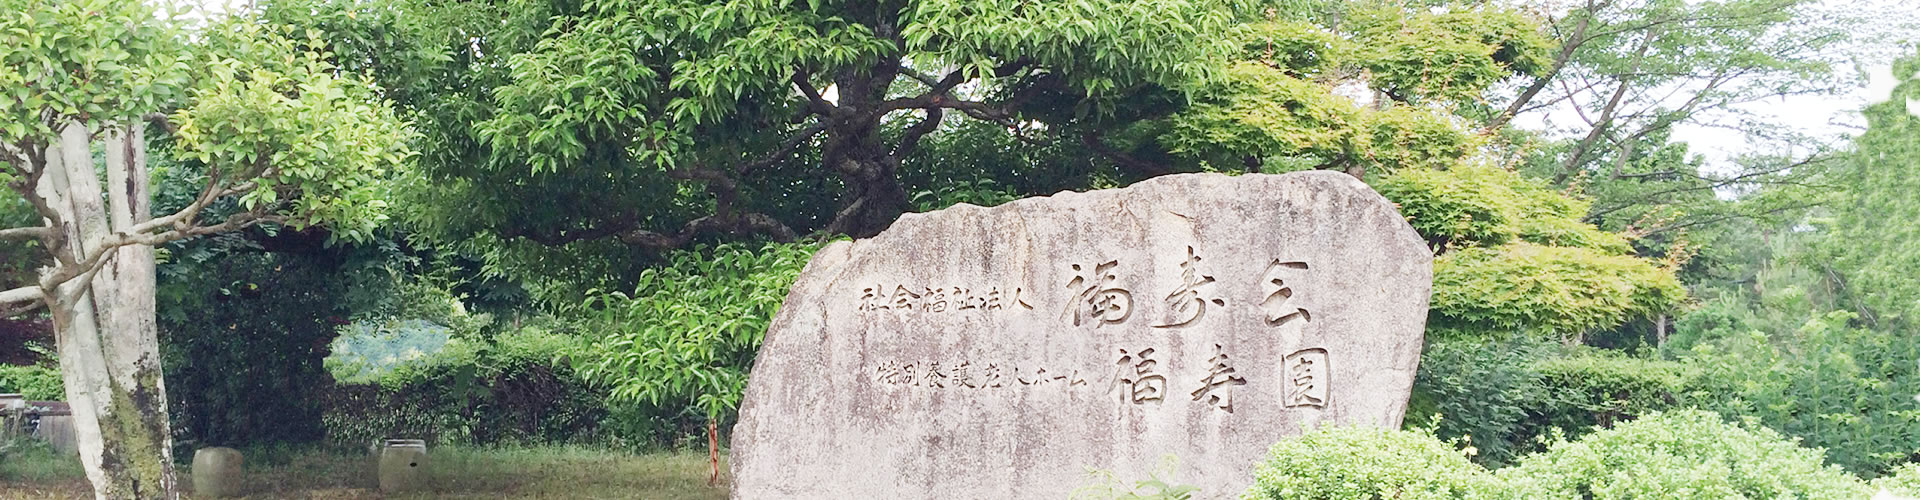 社会福祉法人 福寿会
特別養護老人ホーム 福寿園